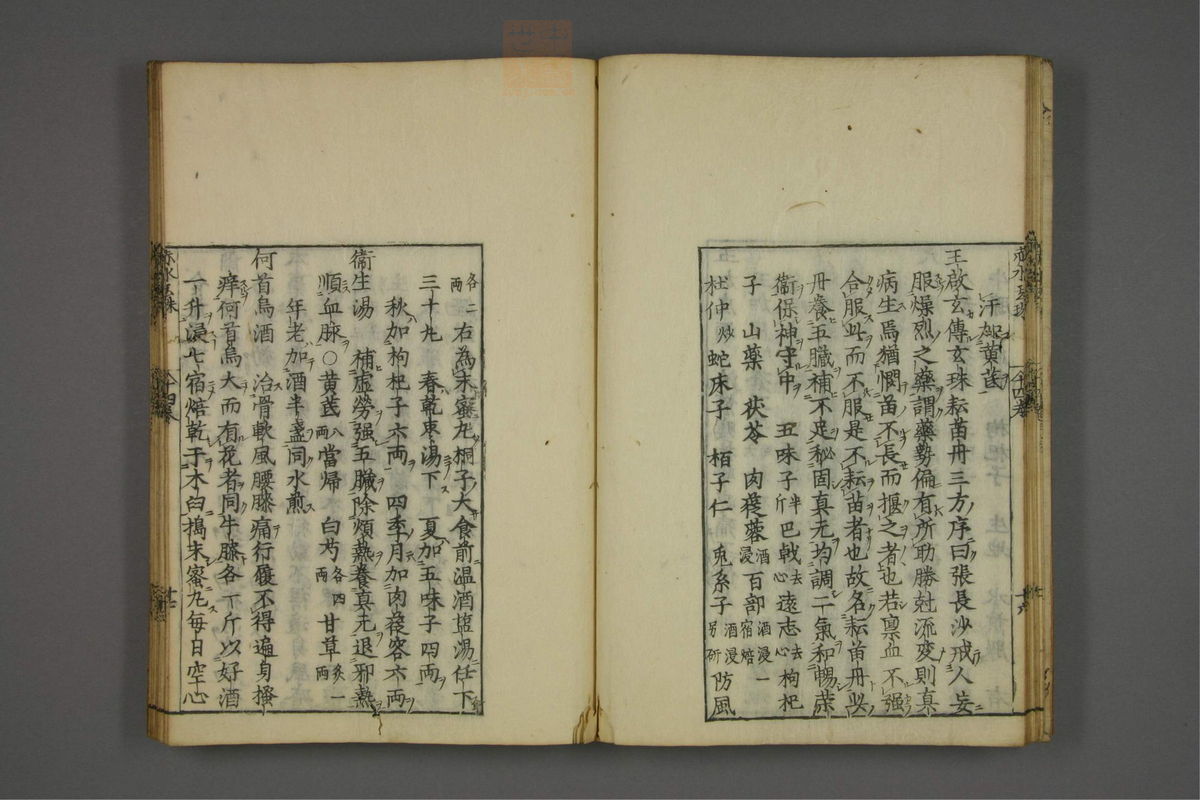 汗加黄芪
王啟玄傳玄珠耘苗丹三方序曰張長沙戒人妄
服燥烈之藥謂藥勢偏有所助勝尅流变則真
病生焉猶憫苗不長而揠之者也若禀血不强
合服此而不服是不耘苗者也故名耘苗丹
丹養五臓補不足秘固真元均調二氣和暢榮
衞保神守中 五味子半斤巴戟去心遠志去心枸杞
子 山藥 茯苓 肉蓯蓉酒浸百部酒浸一宿焙
杜仲炒蛇床子 栢子仁 兎糸子酒浸另研防風
各二両右為末蜜丸桐子大食前温酒塩湯任下
三十丸 春乾枣湯下 夏加五味子四両
秋加枸杞子六両 四季月加肉蓯容六両
衞生湯 補虛勞强五臓除煩熱養真元退邪熱
順血脉○黄芪八両當帰 白芍各四両甘草炙一両
年老加酒半盞同水煎
何首烏酒 治骨軟風腰膝痛行履不得遍身搔
痒何首烏大而有花者同牛膝各一斤以好酒
一升浸七宿焙乾于木臼搗末蜜丸毎日空心